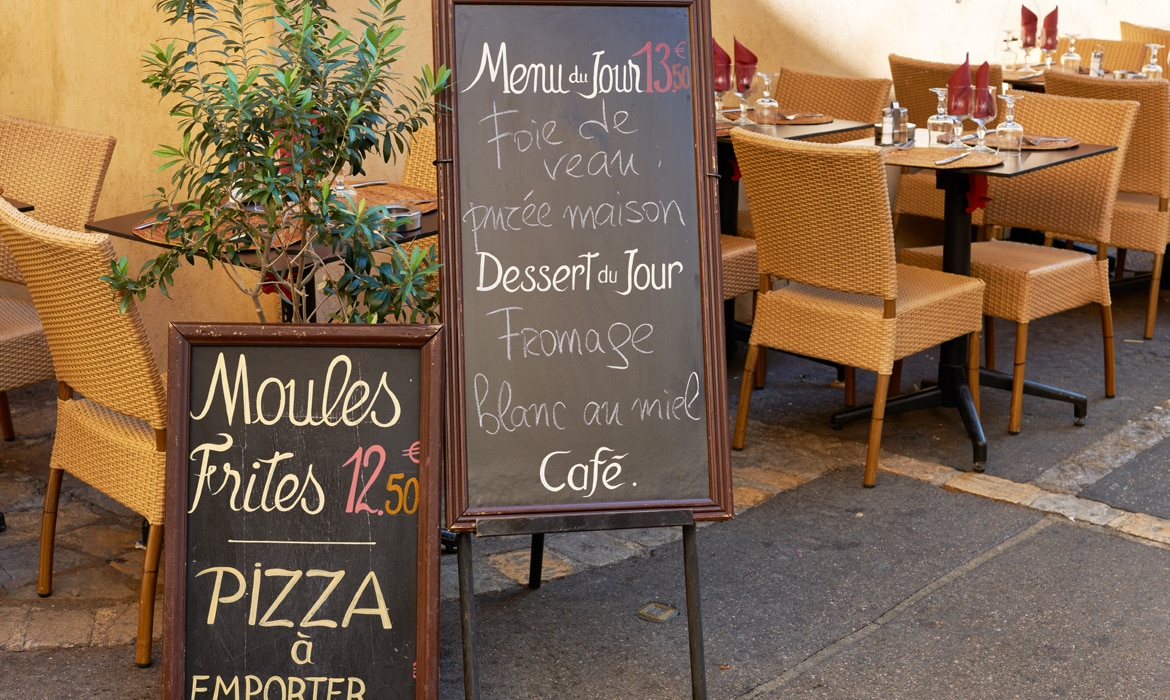 Menu du Jour 13€50
Foie de
veau.
purée maison
Dessert du Jour
Fromage
blanc au miel
Café.
Moules
Frites 12.50€
PIZZA
à
EMPORTER